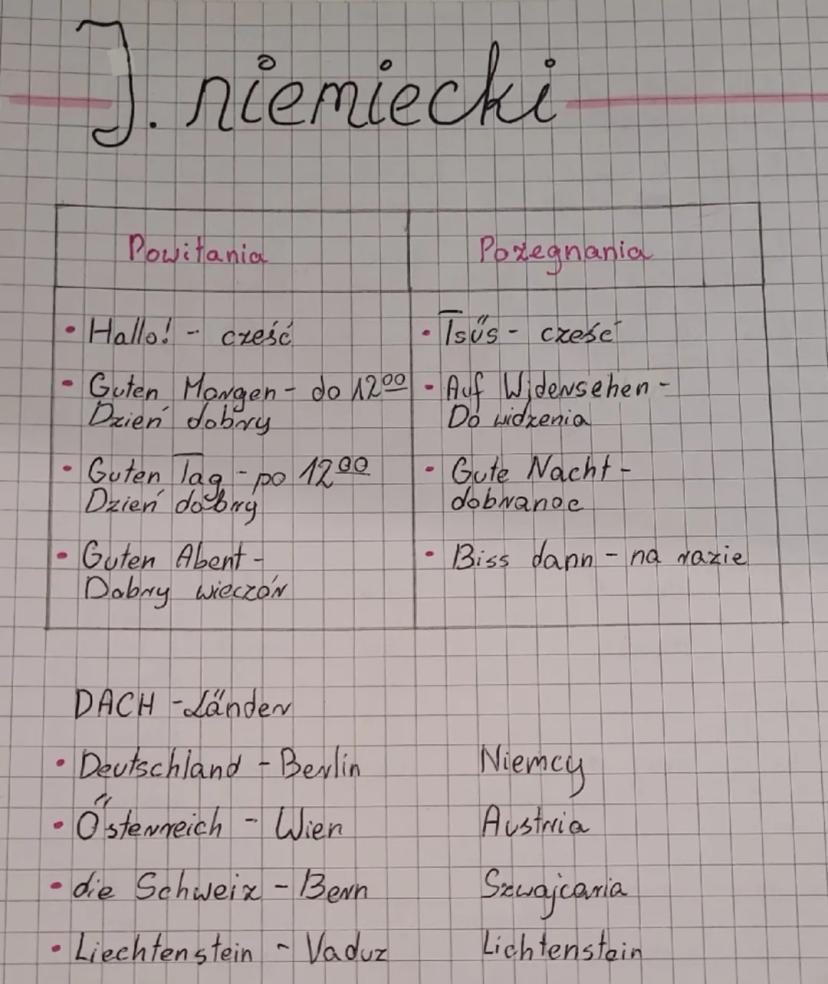 J. niemiecki
Powitania
Pożegnania
• Hallo! - cześć
• Guten Morgen - do 12⁰⁰
Dzień dobry
• Guten Tag - po 12⁰⁰
Dzień dobry
• Guten Abent -
Dobry wieczór
• Tsüs - cześć
• Auf Widersehen -
Do widzenia
• Gute Nacht -
dobranoc
• Biss dann - na razie
DACH - Länder
• Deutschland - Berlin Niemcy
• Österreich - Wien Austria
• die Schweiz - Bern Szwajcaria
• Liechtenstein - Vaduz Lichtenstein